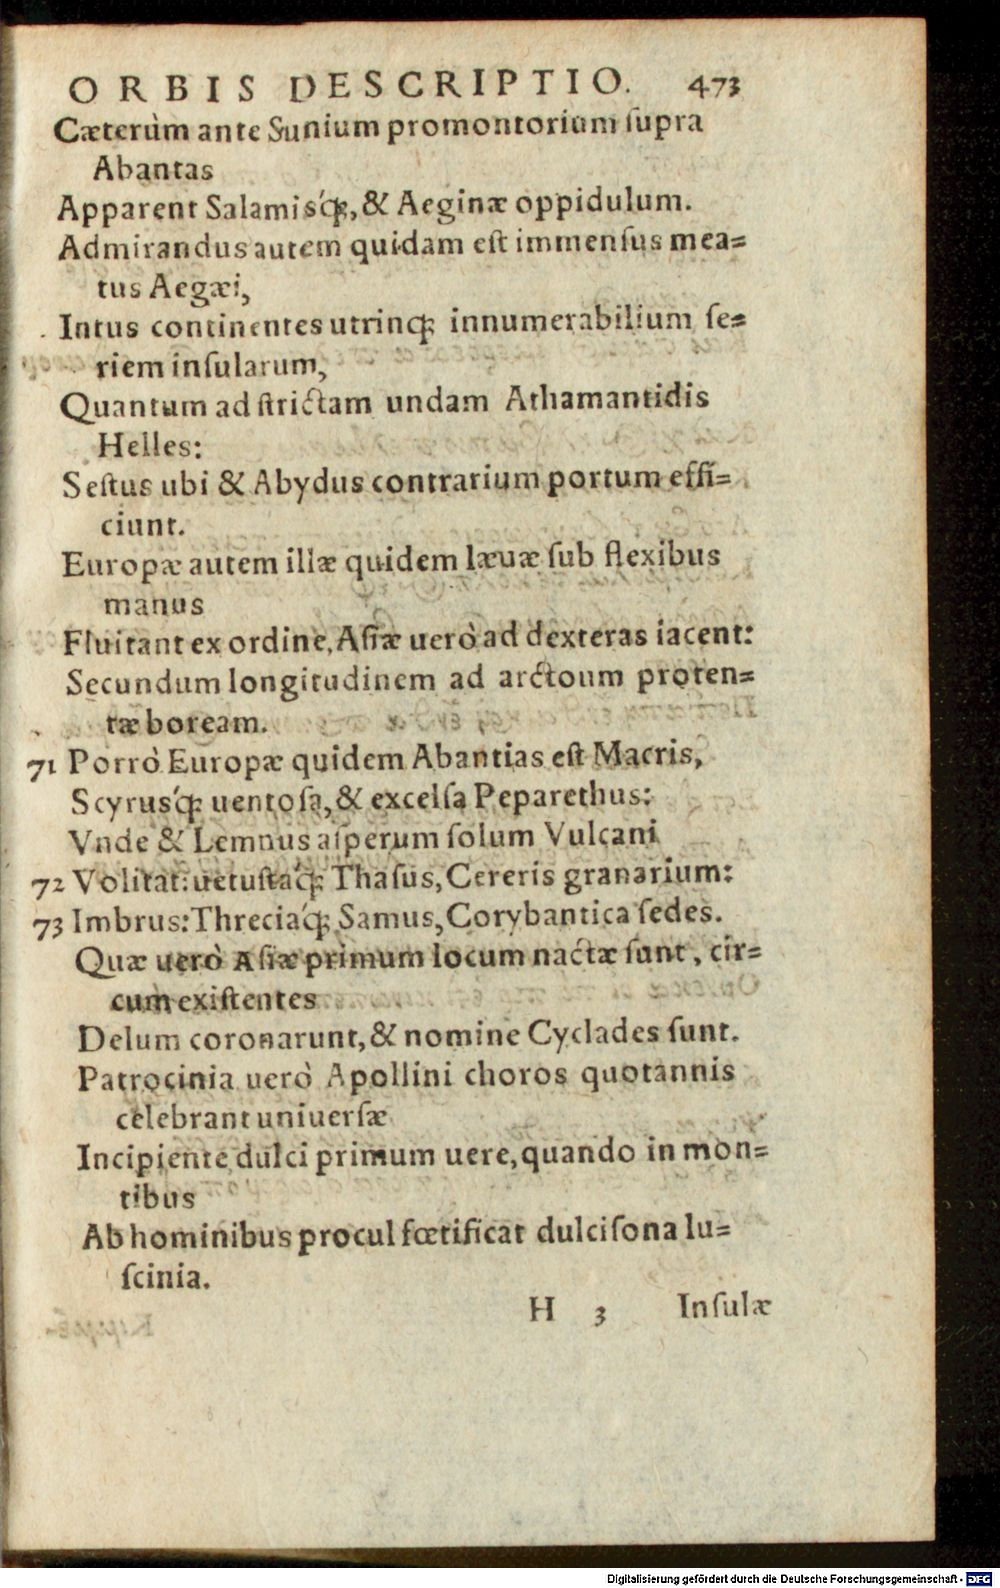 ORBIS DESCRIPTIO. 473
Cæterùm ante Sunium promontorium ſupra
Abantas
Apparent Salamisq́;, & Aeginæ oppidulum.
Admirandus autem quidam eſt immenſus mea=
tus Aegæi,
Intus continentes utrinq; innumerabilium ſe=
riem inſularum,
Quantum ad ſtrictam undam Athamantidis
Helles:
Seſtus ubi & Abydus contrarium portum effi=
ciunt.
Europæ autem illæ quidem læuæ ſub flexibus
manus
Fluitant ex ordine, Aſiæ uerò ad dexteras iacent:
Secundum longitudinem ad arctoum proten=
tæ boream.
71 Porrò Europæ quidem Abantias eſt Macris,
Scyrusq́; uentoſa, & excelſa Peparethus:
Vnde & Lemnus aſperum ſolum Vulcani
72 Volitat: uetuſtaq́; Thaſus, Cereris granarium:
73 Imbrus: Threciaq́; Samus, Corybantica ſedes.
Quæ uerò Aſiæ primum locum nactæ ſunt, cir=
cum exiſtentes
Delum coronarunt, & nomine Cyclades ſunt.
Patrocinia uerò Apollini choros quotannis
celebrant uniuerſæ
Incipiente dulci primum uere, quando in mon=
tibus
Ab hominibus procul fœtificat dulciſona lu=
ſcinia.
H 3 Inſulæ
Digitalisierung gefördert durch die Deutsche Forschungsgemeinschaft - DFG